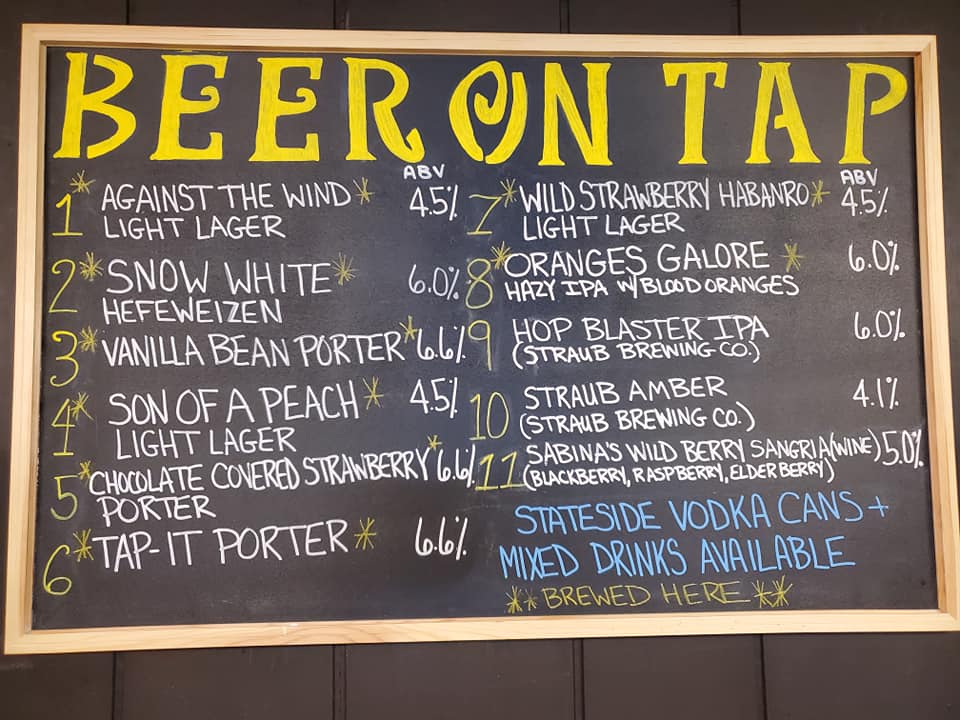 BEER ON TAP
ABV
1 * AGAINST THE WIND * 4.5%
LIGHT LAGER
2 * SNOW WHITE * 6.0%
HEFEWEIZEN
3 * VANILLA BEAN PORTER * 6.6%
4 * SON OF A PEACH * 4.5%
LIGHT LAGER
5 * CHOCOLATE COVERED STRAWBERRY * 6.6%
PORTER
6 * TAP-IT PORTER * 6.6%
ABV
7 * WILD STRAWBERRY HABANRO * 4.5%
LIGHT LAGER
8 * ORANGES GALORE * 6.0%
HAZY IPA W/BLOOD ORANGES
9 HOP BLASTER IPA 6.0%
(STRAUB BREWING CO.)
10 STRAUB AMBER 4.1%
(STRAUB BREWING CO.)
11 SABINA'S WILD BERRY SANGRIA (WINE) 5.0%
(BLACKBERRY, RASPBERRY, ELDERBERRY)
STATESIDE VODKA CANS +
MIXED DRINKS AVAILABLE
** BREWED HERE **